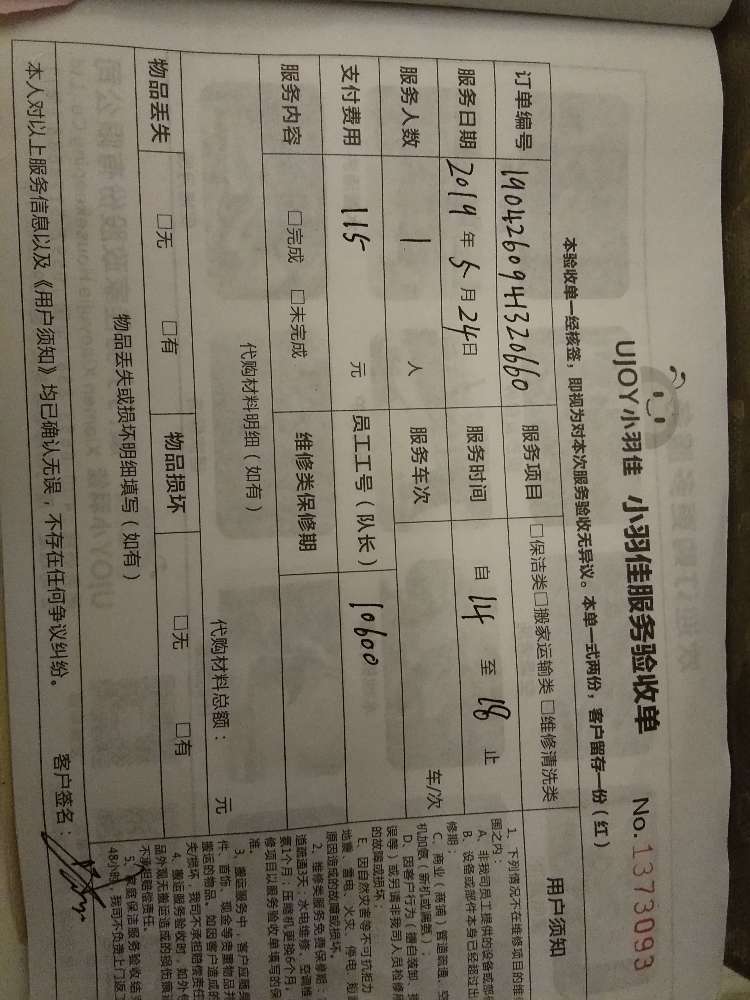 UJOY小羽佳 小羽佳服务验收单 No.1373093
本验收单一经核签，即视为对本次服务验收无异议。本单一式两份，客户留存一份（红）
订单编号 19042609441320660 服务项目 □保洁类□搬家运输类□维修清洗类
服务日期 2019年5月24日 服务时间 自 14 至 18 止
服务人数 1 人 服务车次 车/次
支付费用 115 元 员工工号（队长） 10600
服务内容 □完成 □未完成 维修类保修期
代购材料明细（如有）
代购材料总额： 元
物品丢失 □无 □有 物品损坏 □无 □有
物品丢失或损坏明细填写（如有）
本人对以上服务信息以及《用户须知》均已确认无误，不存在任何争议纠纷。 客户签名：
用户须知
1、下列情况不在维修项目的维
围之内：
A、非我司员工提供的设备或部
B、设备或部件本身已经超过出
修期；
C、商业（商铺）管道疏通、空
机加氟（新机或漏氟）；
D、因客户行为（擅自装卸、
误等）或另请非我司人员检修
的故障或损坏。
E、因自然灾害等不可抗力
地震、雷电、火灾、停电、
原因造成的故障或损坏。
2、维修类服务免费保修期：
道疏通3天；水电维修、空调维
氟1个月；压缩机更换6个月，
修项目以服务验收单填写的保
准。
3、搬运服务中，客户应随身
件、首饰、现金等贵重物品
搬运的物品，如因客户造成的
失/损坏，我司不承担赔偿责任
4、搬运服务验收时，如外
品外观无搬运造成的损伤痕
不承担赔偿责任。
5、家庭保洁服务验收结
48小时，我司不负责上门返工